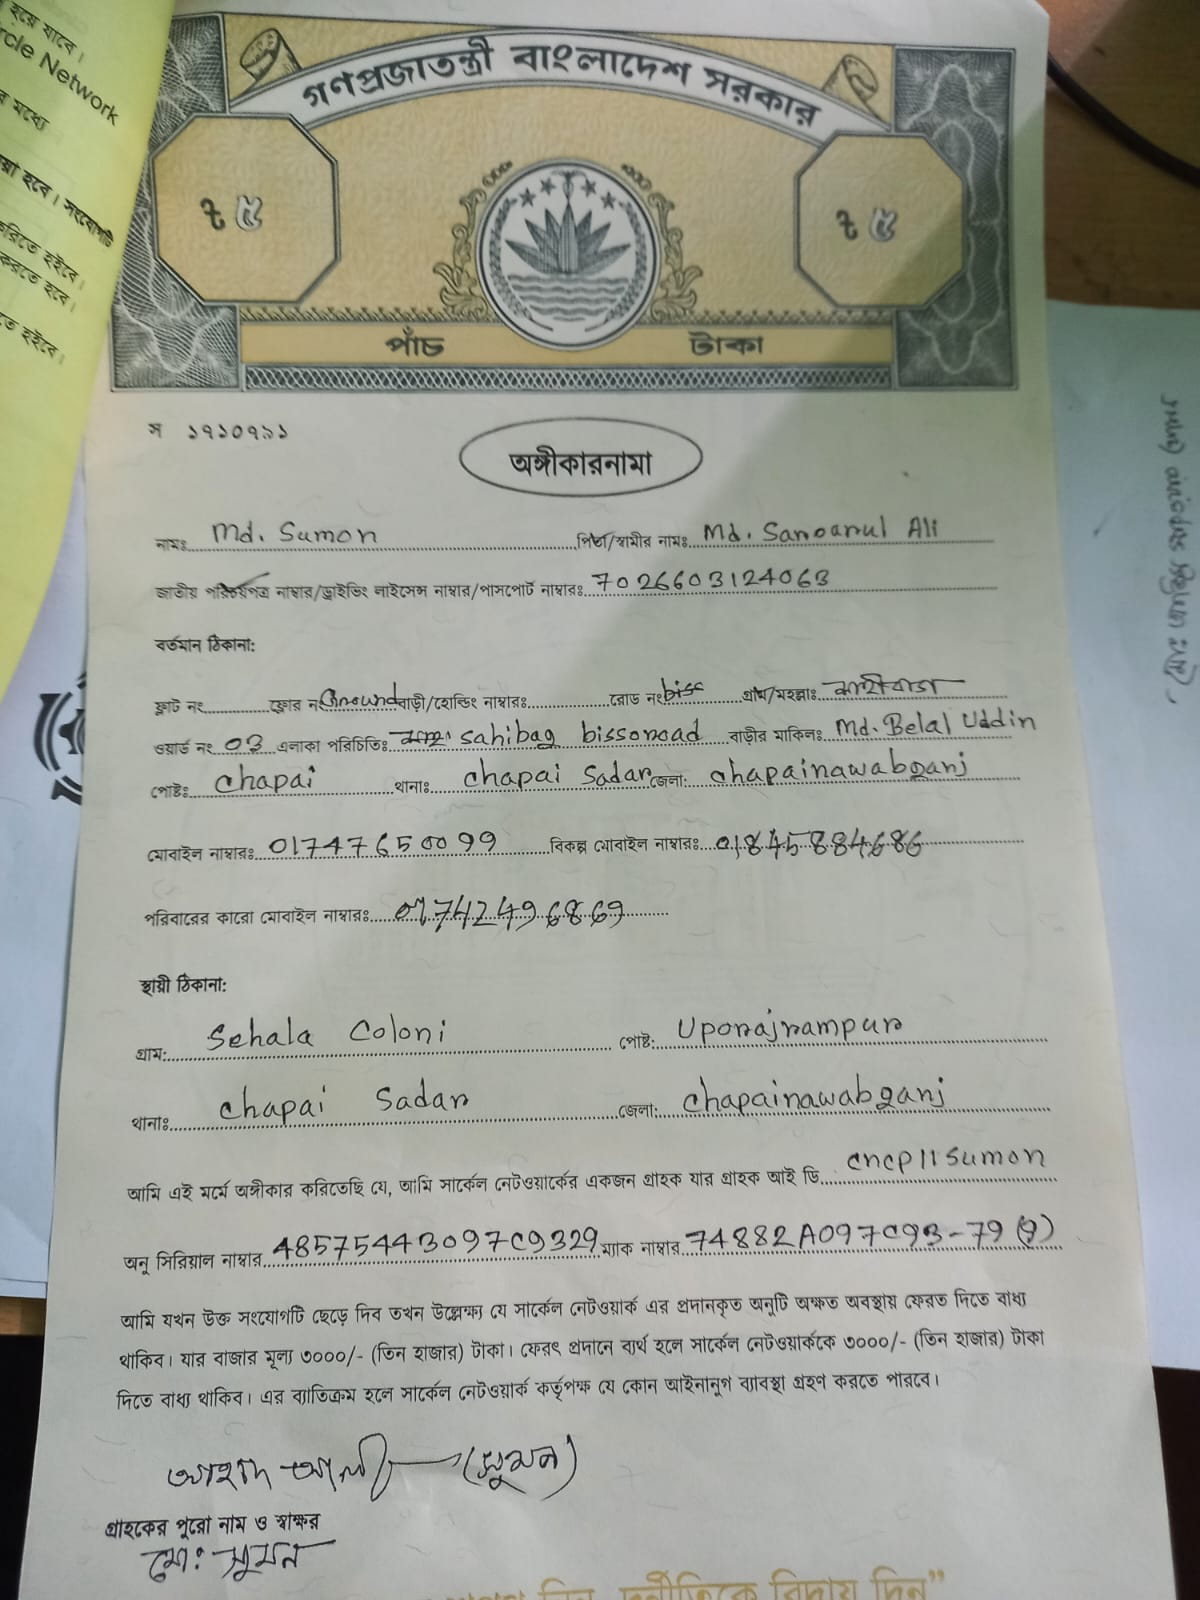 হয়ে যাবে।
rcle Network
র মধ্যে
য়া হবে। সংযোগটি
করিতে হইবে।
করতে হবে।
তে হইবে।
গণপ্রজাতন্ত্রী বাংলাদেশ সরকার
৳ ৫ ৳ ৫
পাঁচ টাকা
স ১৭১০৭৯১
অঙ্গীকারনামা
নামঃ Md. Sumon পিতা/স্বামীর নামঃ Md. Sanoarul Ali
জাতীয় পরিচয়পত্র নাম্বার/ড্রাইভিং লাইসেন্স নাম্বার/পাসপোর্ট নাম্বারঃ 7026603124063
বর্তমান ঠিকানা:
ফ্লাট নং ফ্লোর নং Ground বাড়ী/হোল্ডিং নাম্বারঃ রোড নং biss গ্রাম/মহল্লাঃ
ওয়ার্ড নং 03 এলাকা পরিচিতিঃ sahibag bissoroad বাড়ীর মালিকঃ Md. Belal Uddin
পোষ্টঃ chapai থানাঃ chapai Sadar জেলা: chapainawabganj
মোবাইল নাম্বারঃ 01747650099 বিকল্প মোবাইল নাম্বারঃ 01845884686
পরিবারের কারো মোবাইল নাম্বারঃ 01742496869
স্থায়ী ঠিকানা:
গ্রাম: Sehala Coloni পোষ্ট: Uporajrampur
থানাঃ chapai Sadar জেলা: chapainawabganj
আমি এই মর্মে অঙ্গীকার করিতেছি যে, আমি সার্কেল নেটওয়ার্কের একজন গ্রাহক যার গ্রাহক আই ডি cncp11sumon
অনু সিরিয়াল নাম্বার 485754443097C9329 ম্যাক নাম্বার 74882A097C93-79 (9)
আমি যখন উক্ত সংযোগটি ছেড়ে দিব তখন উল্লেক্ষ্য যে সার্কেল নেটওয়ার্ক এর প্রদানকৃত অনুটি অক্ষত অবস্থায় ফেরত দিতে বাধ্য
থাকিব। যার বাজার মূল্য ৩০০০/- (তিন হাজার) টাকা। ফেরৎ প্রদানে ব্যর্থ হলে সার্কেল নেটওয়ার্ককে ৩০০০/- (তিন হাজার) টাকা
দিতে বাধ্য থাকিব। এর ব্যাতিক্রম হলে সার্কেল নেটওয়ার্ক কর্তৃপক্ষ যে কোন আইনানুগ ব্যাবস্থা গ্রহণ করতে পারবে।
আহাদ আলী (সুমন)
গ্রাহকের পুরো নাম ও স্বাক্ষর
মো: সুমন
দিন, দুর্নীতিকে বিদায় দিন”